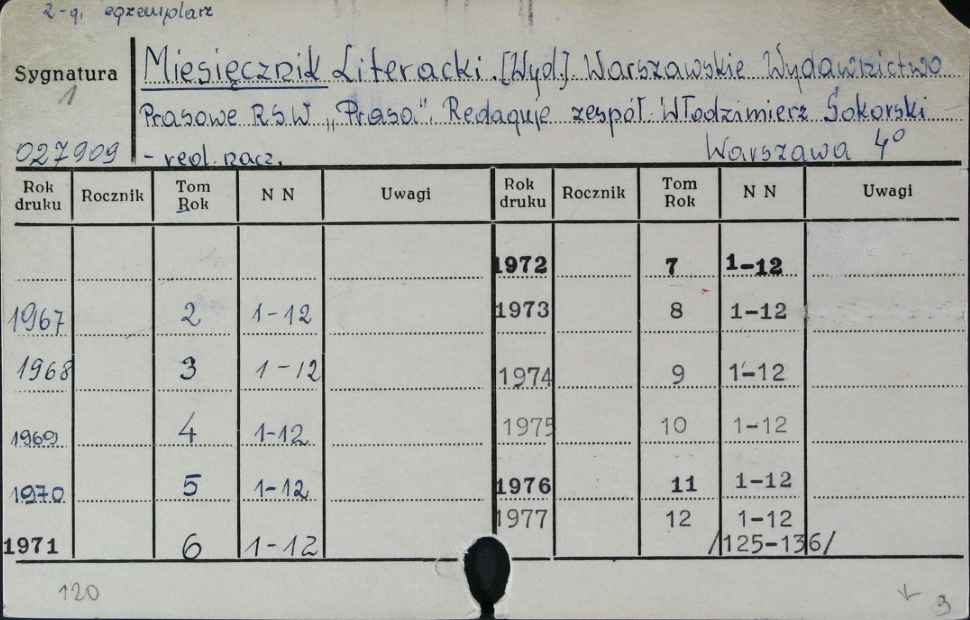 2-gi egzemplarz
Sygnatura
1
027909
Miesięcznik Literacki. [Wyd.] Warszawskie Wydawnictwo
Prasowe RSW „Prasa". Redaguje zespół. Włodzimierz Sokorski
- red. nacz. Warszawa 4°
Rok druku Rocznik Tom Rok N N Uwagi Rok druku Rocznik Tom Rok N N Uwagi
1972 7 1-12
1967 2 1-12 1973 8 1-12
1968 3 1-12 1974 9 1-12
1969 4 1-12 1975 10 1-12
1970 5 1-12 1976 11 1-12
1977 12 1-12
1971 6 1-12 /125-136/
120
3